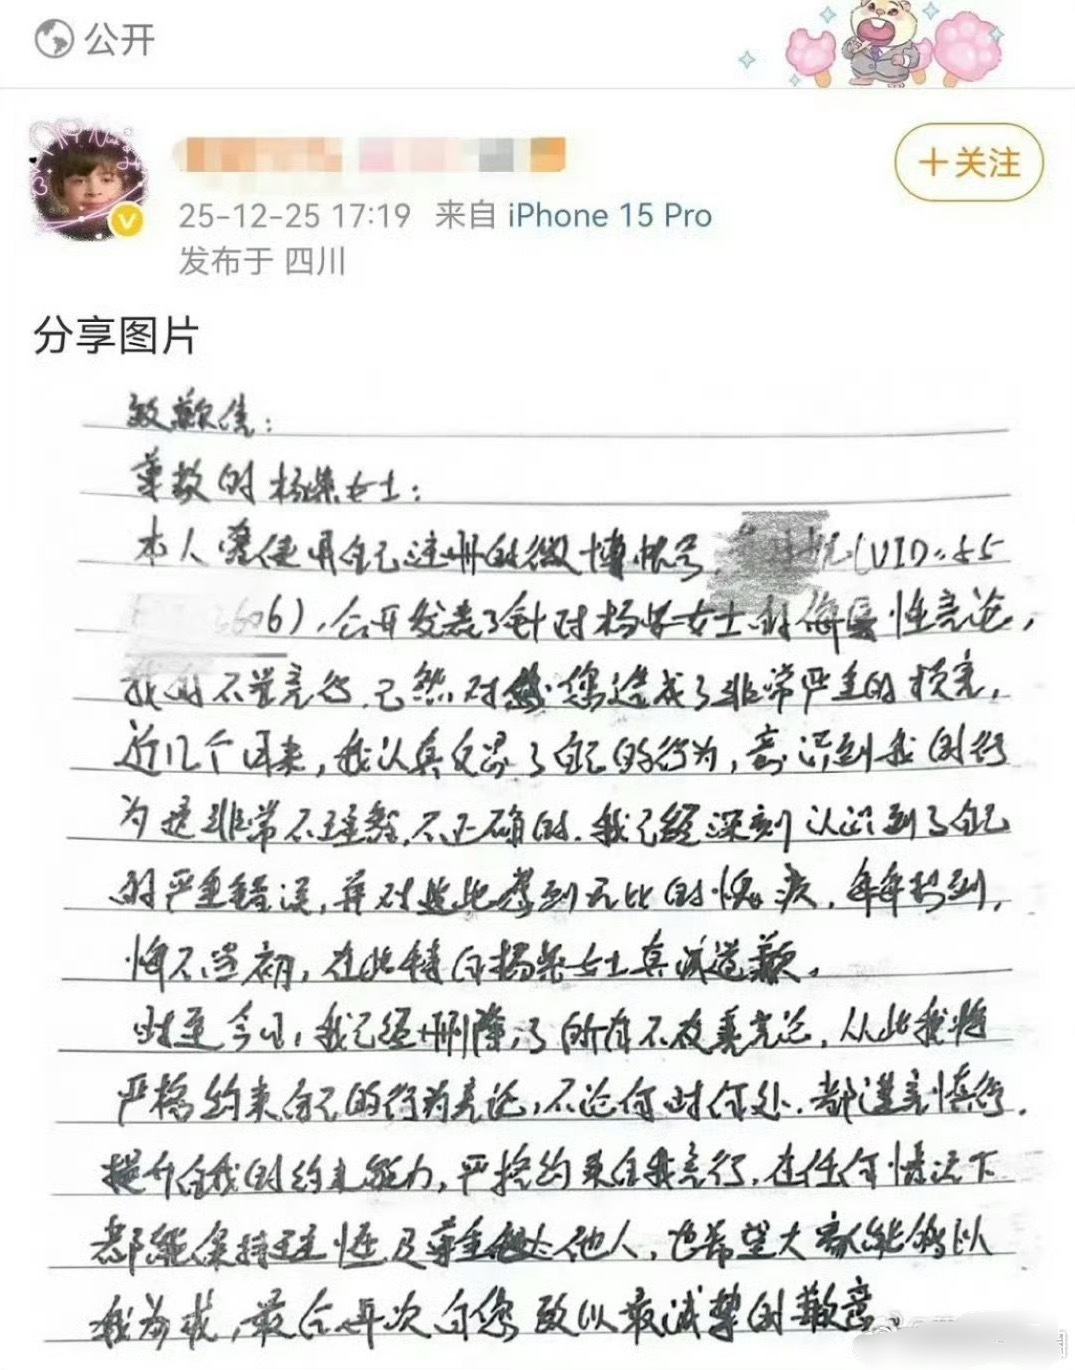 公开
+关注
25-12-25 17:19 来自 iPhone 15 Pro
发布于 四川
分享图片
致歉信：
尊敬的杨紫女士：
本人曾使用自己注册的微博帐号 (UID:55
606)，公开发表了针对杨紫女士的侮辱性言论，
我的不当言行已然对您造成了非常严重的损害，
近几个月来，我认真反思了自己的行为，意识到我的行
为是非常不理智、不正确的。我已经深刻认识到了自己
的严重错误，并对此感到无比的愧疚，每每想到，
悔不当初，在此特向杨紫女士真诚道歉。
时至今日，我已经删除了所有不友善言论，从此我将
严格约束自己的行为言论，不论何时何处，都谨言慎行，
提升自我的约束能力，严格约束自我言行，在任何情况下
都能保持理性及尊重他人，也希望大家能够以
我为戒，最后再次向您致以最诚挚的歉意。